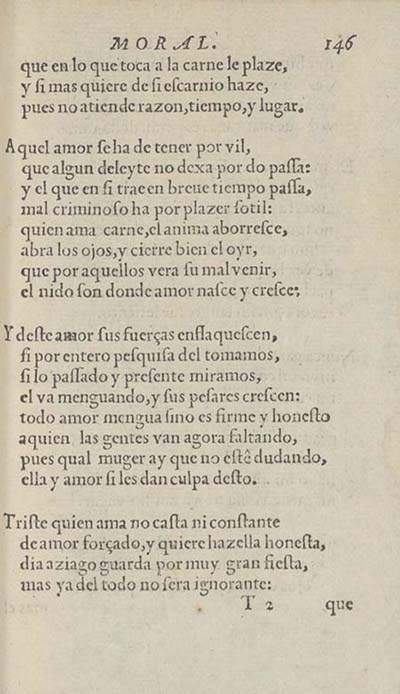 MORAL. 146
que en lo que toca a la carne le plaze,
y si mas quiere de si escarnio haze,
pues no atiende razon, tiempo, y lugar.
Aquel amor se ha de tener por vil,
que algun deleyte no dexa por do passa:
y el que en si trae en breue tiempo passa,
mal criminoso ha por plazer sotil:
quien ama carne, el anima aborresce,
abra los ojos, y cierre bien el oyr,
que por aquellos vera su mal venir,
el nido son donde amor nasce y cresce:
Y deste amor sus fuerças enflaquescen,
si por entero pesquisa del tomamos,
si lo passado y presente miramos,
el va menguando, y sus pesares crescen:
todo amor mengua sino es firme y honesto
aquien las gentes van agora faltando,
pues qual muger ay que no estê dudando,
ella y amor si les dan culpa desto.
Triste quien ama no casta ni constante
de amor forçado, y quiere hazella honesta,
dia aziago guarda por muy gran fiesta,
mas ya del todo no sera ignorante:
T 2 que